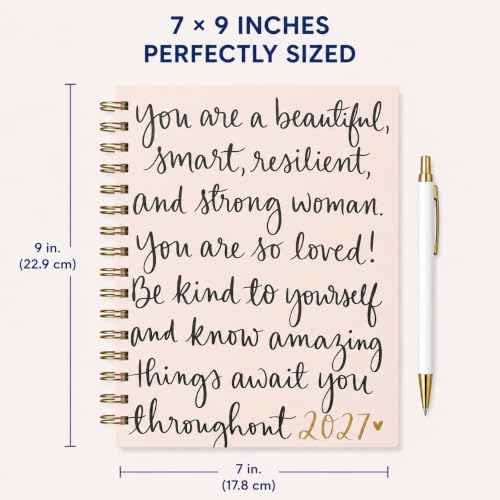 7 × 9 INCHES
PERFECTLY SIZED
You are a beautiful,
smart, resilient,
and strong woman.
You are so loved!
Be kind to yourself
and know amazing
things await you
throughout 2027
9 in.
(22.9 cm)
7 in.
(17.8 cm)